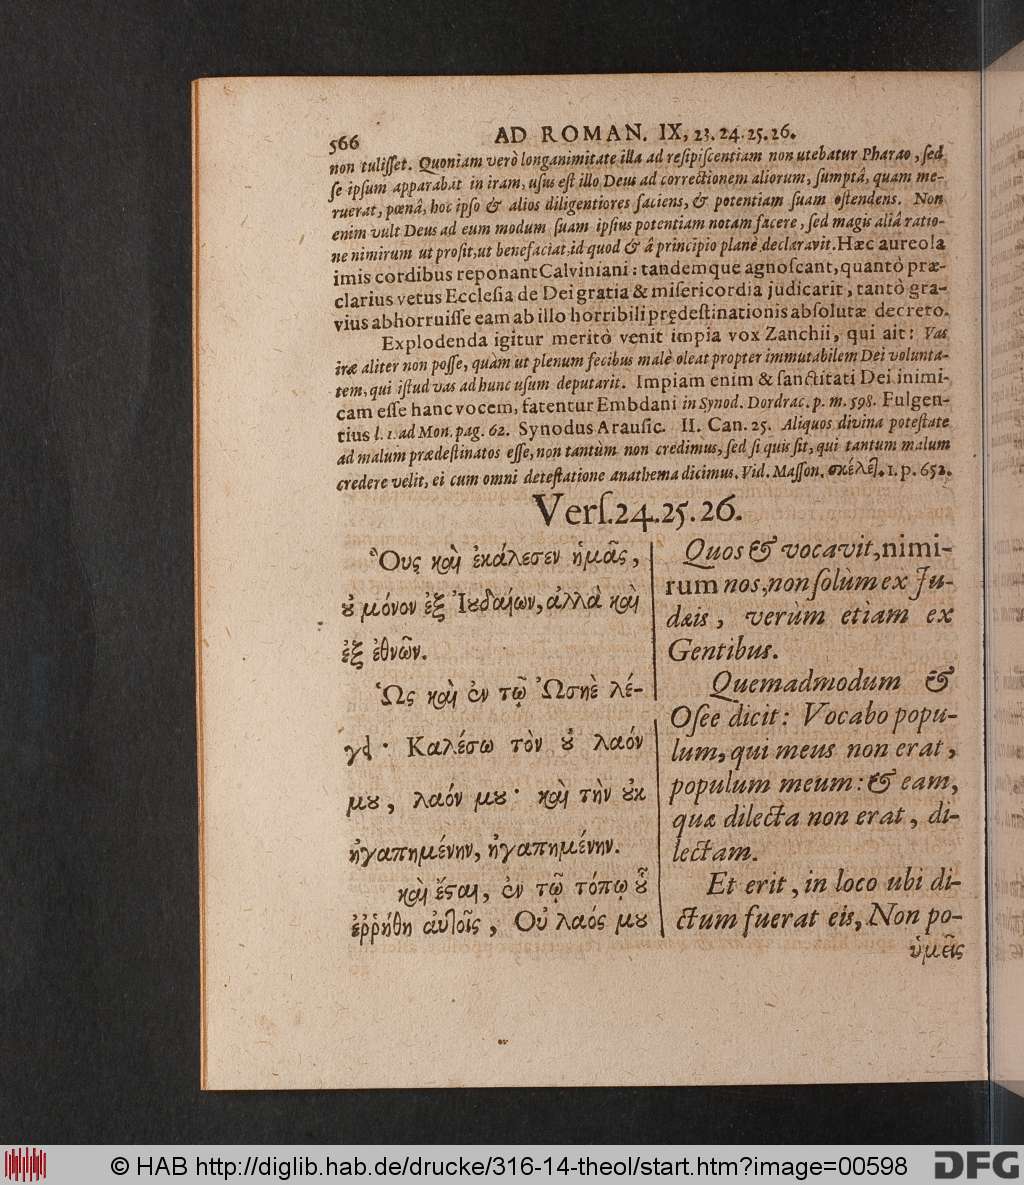 566 AD ROMAN. IX, 23. 24. 25. 26.
non tulisset. Quoniam verò longanimitate illa ad resipiscentiam non utebatur Pharao, sed
se ipsum apparabat in iram, usus est illo Deus ad correctionem aliorum, sumptâ, quam me-
ruerat, pœnâ, hoc ipso & alios diligentiores faciens, & potentiam suam ostendens. Non
enim vult Deus ad eum modum suam ipsius potentiam notam facere, sed magis aliâ ratio-
ne nimirum ut prosit, ut benefaciat, id quod & â principio planè declaravit. Hæc aureola
imis cordibus reponant Calviniani: tandemque agnoscant, quantò præ-
clarius vetus Ecclesia de Dei gratia & misericordia judicarit, tantò gra-
vius abhorruisse eam ab illo horribili prędestinationis absolutæ decreto.
Explodenda igitur meritò venit impia vox Zanchii, qui ait: Vas
iræ aliter non posse, quàm ut plenum fecibus malè oleat propter immutabilem Dei volunta-
tem, qui istud vas ad hunc usum deputarit. Impiam enim & sanctitati Dei inimi-
cam esse hanc vocem, fatentur Embdani in Synod. Dordrac. p. m. 598. Fulgen-
tius l. 1. ad Mon. pag. 62. Synodus Arausic. II. Can. 25. Aliquos divina potestate
ad malum prædestinatos esse, non tantùm non credimus, sed si quis sit, qui tantum malum
credere velit, ei cum omni detestatione anathema dicimus. Vid. Masson. σκέλεϯ. 1. p. 652.
Vers. 24. 25. 26.
Ὃυς καὶ ἐκάλεσεν ἡμᾶς,
ȣ́ μόνον ἐξ Ἰȣδαίων, ἀλλὰ καὶ
ἐξ ἐθνῶν.
Ὡς καὶ ἐν τῷ Ὠσηὲ λέ-
γει· Καλέσω τὸν ȣ̓ λαόν
μȣ, λαόν μȣ· καὶ τὴν ȣ̓κ
ἠγαπημένην, ἠγαπημένην.
καὶ ἔσται, ἐν τῷ τόπῳ ȣ̓͂
ἐῤῥήθη αὐτοῖς, Οὐ λαός μȣ
Quos & vocavit, nimi-
rum nos, non solùm ex Ju-
dæis, verùm etiam ex
Gentibus.
Quemadmodum &
Osee dicit: Vocabo popu-
lum, qui meus non erat,
populum meum: & eam,
quæ dilecta non erat, di-
lectam.
Et erit, in loco ubi di-
ctum fuerat eis, Non po-
ὑμεῖς
© HAB http://diglib.hab.de/drucke/316-14-theol/start.htm?image=00598 DFG